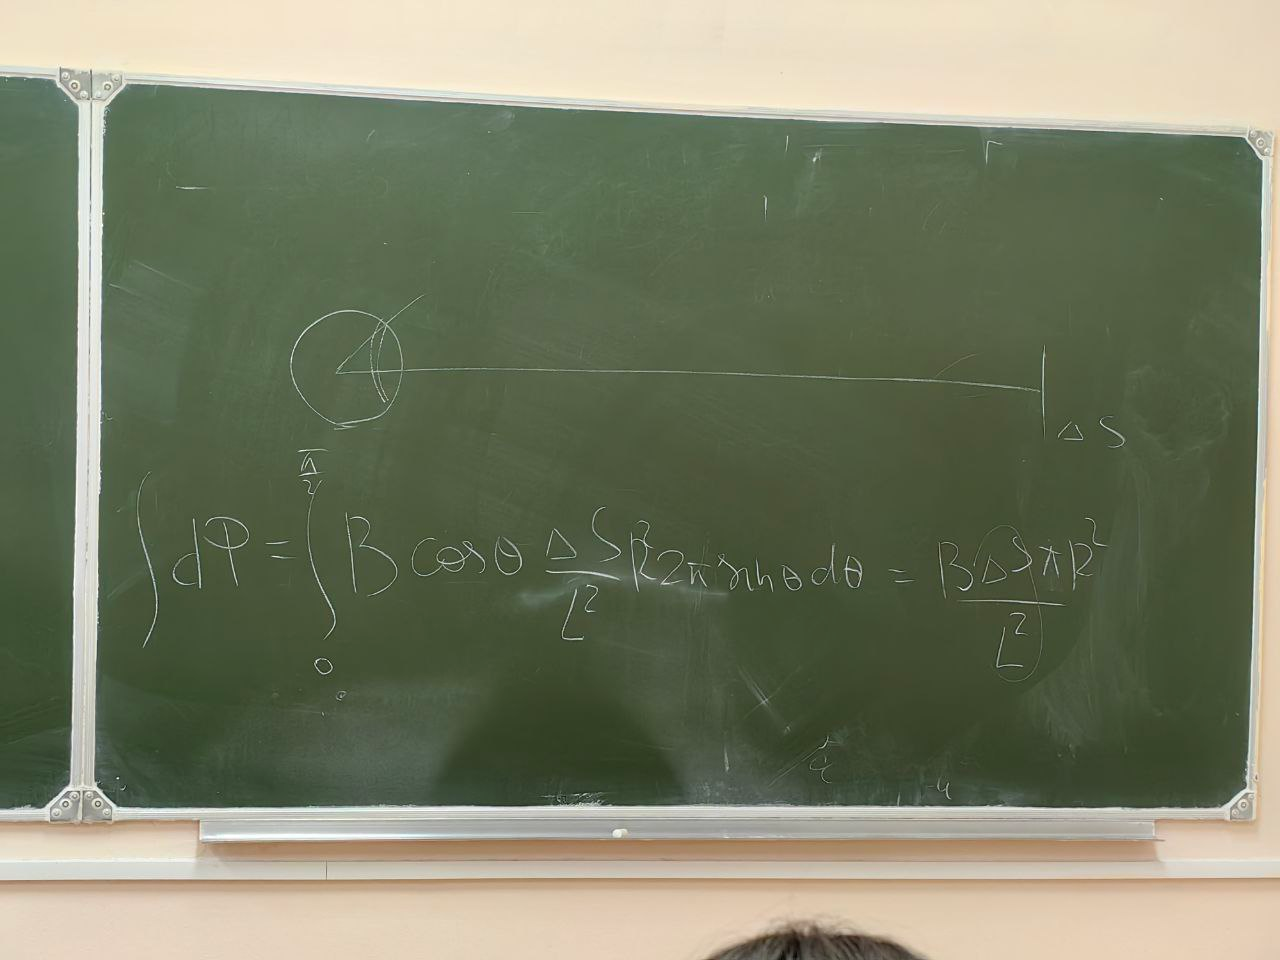 ΔS
∫dP = ∫₀^{π/2} B cosθ ΔS/L² R² 2π sinθ dθ = BΔSπR²/L²